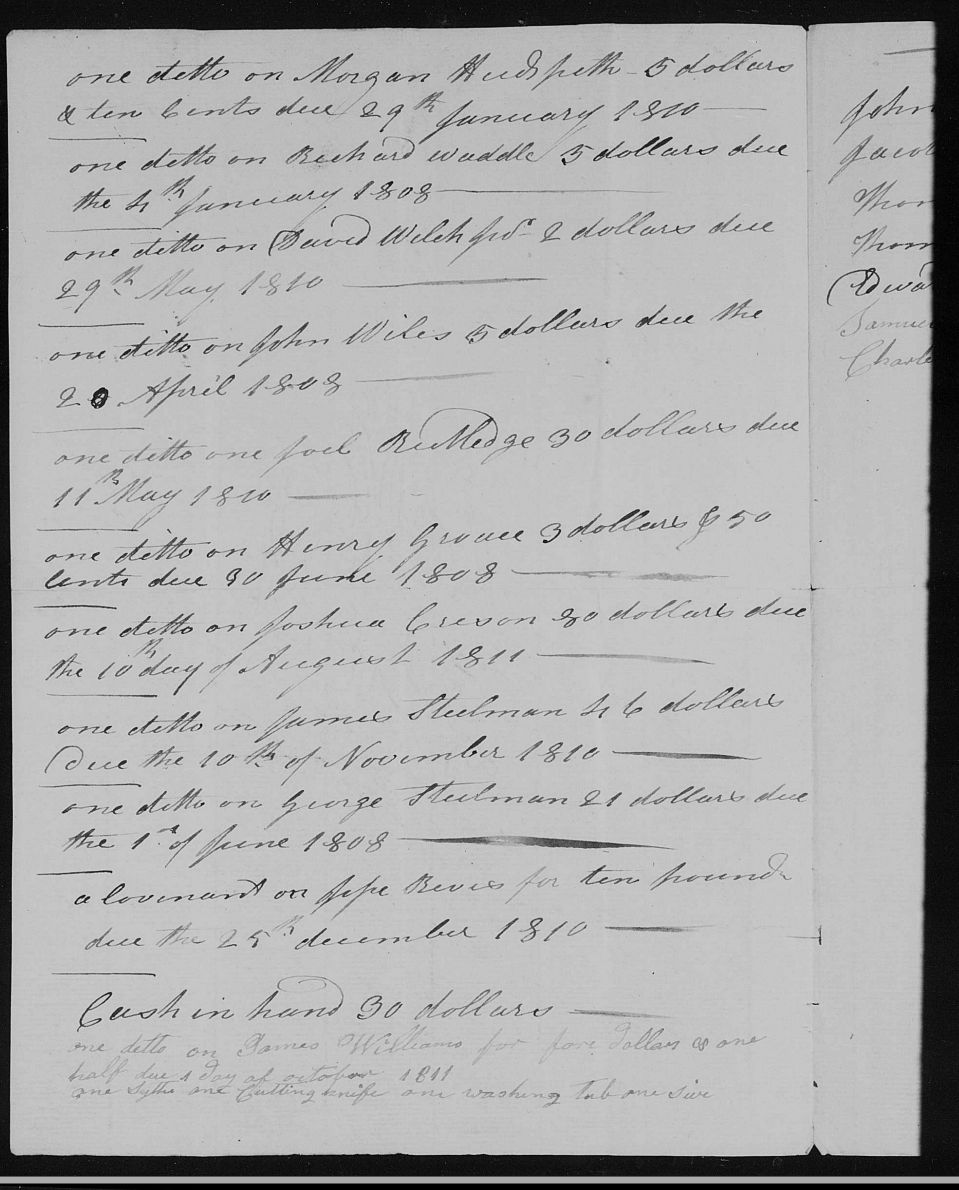 one ditto on Morgan Hudspeth - 5 dollars
& ten Cents due 29th January 1810
one ditto on Richard Waddle 5 dollars due
the 4th January 1808
one ditto on David Welch 2 dollars due
29th May 1810
one ditto on John Wiles 5 dollars due the
20 April 1808
one ditto one Joel Rutledge 30 dollars due
11th May 1810
one ditto on Henry 3 dollars & 50
Cents due 30 June 1808
one ditto on Joshua Creson 30 dollars due
the 10th day of August 1811
one ditto on James Steelman 46 dollars
Due the 10th of November 1810
one ditto on George Steelman 21 dollars due
the 1st of June 1808
a Covenant on Reves for ten pounds
due the 25th december 1810
Cash in hand 30 dollars
one ditto on James Williams for fore dollars & one
half due 1 Day of octobar 1811
one Sythe one Cutting knife one washing Tub one
John
Jacob
Thom
Thom
Edwa
Samue
Charle